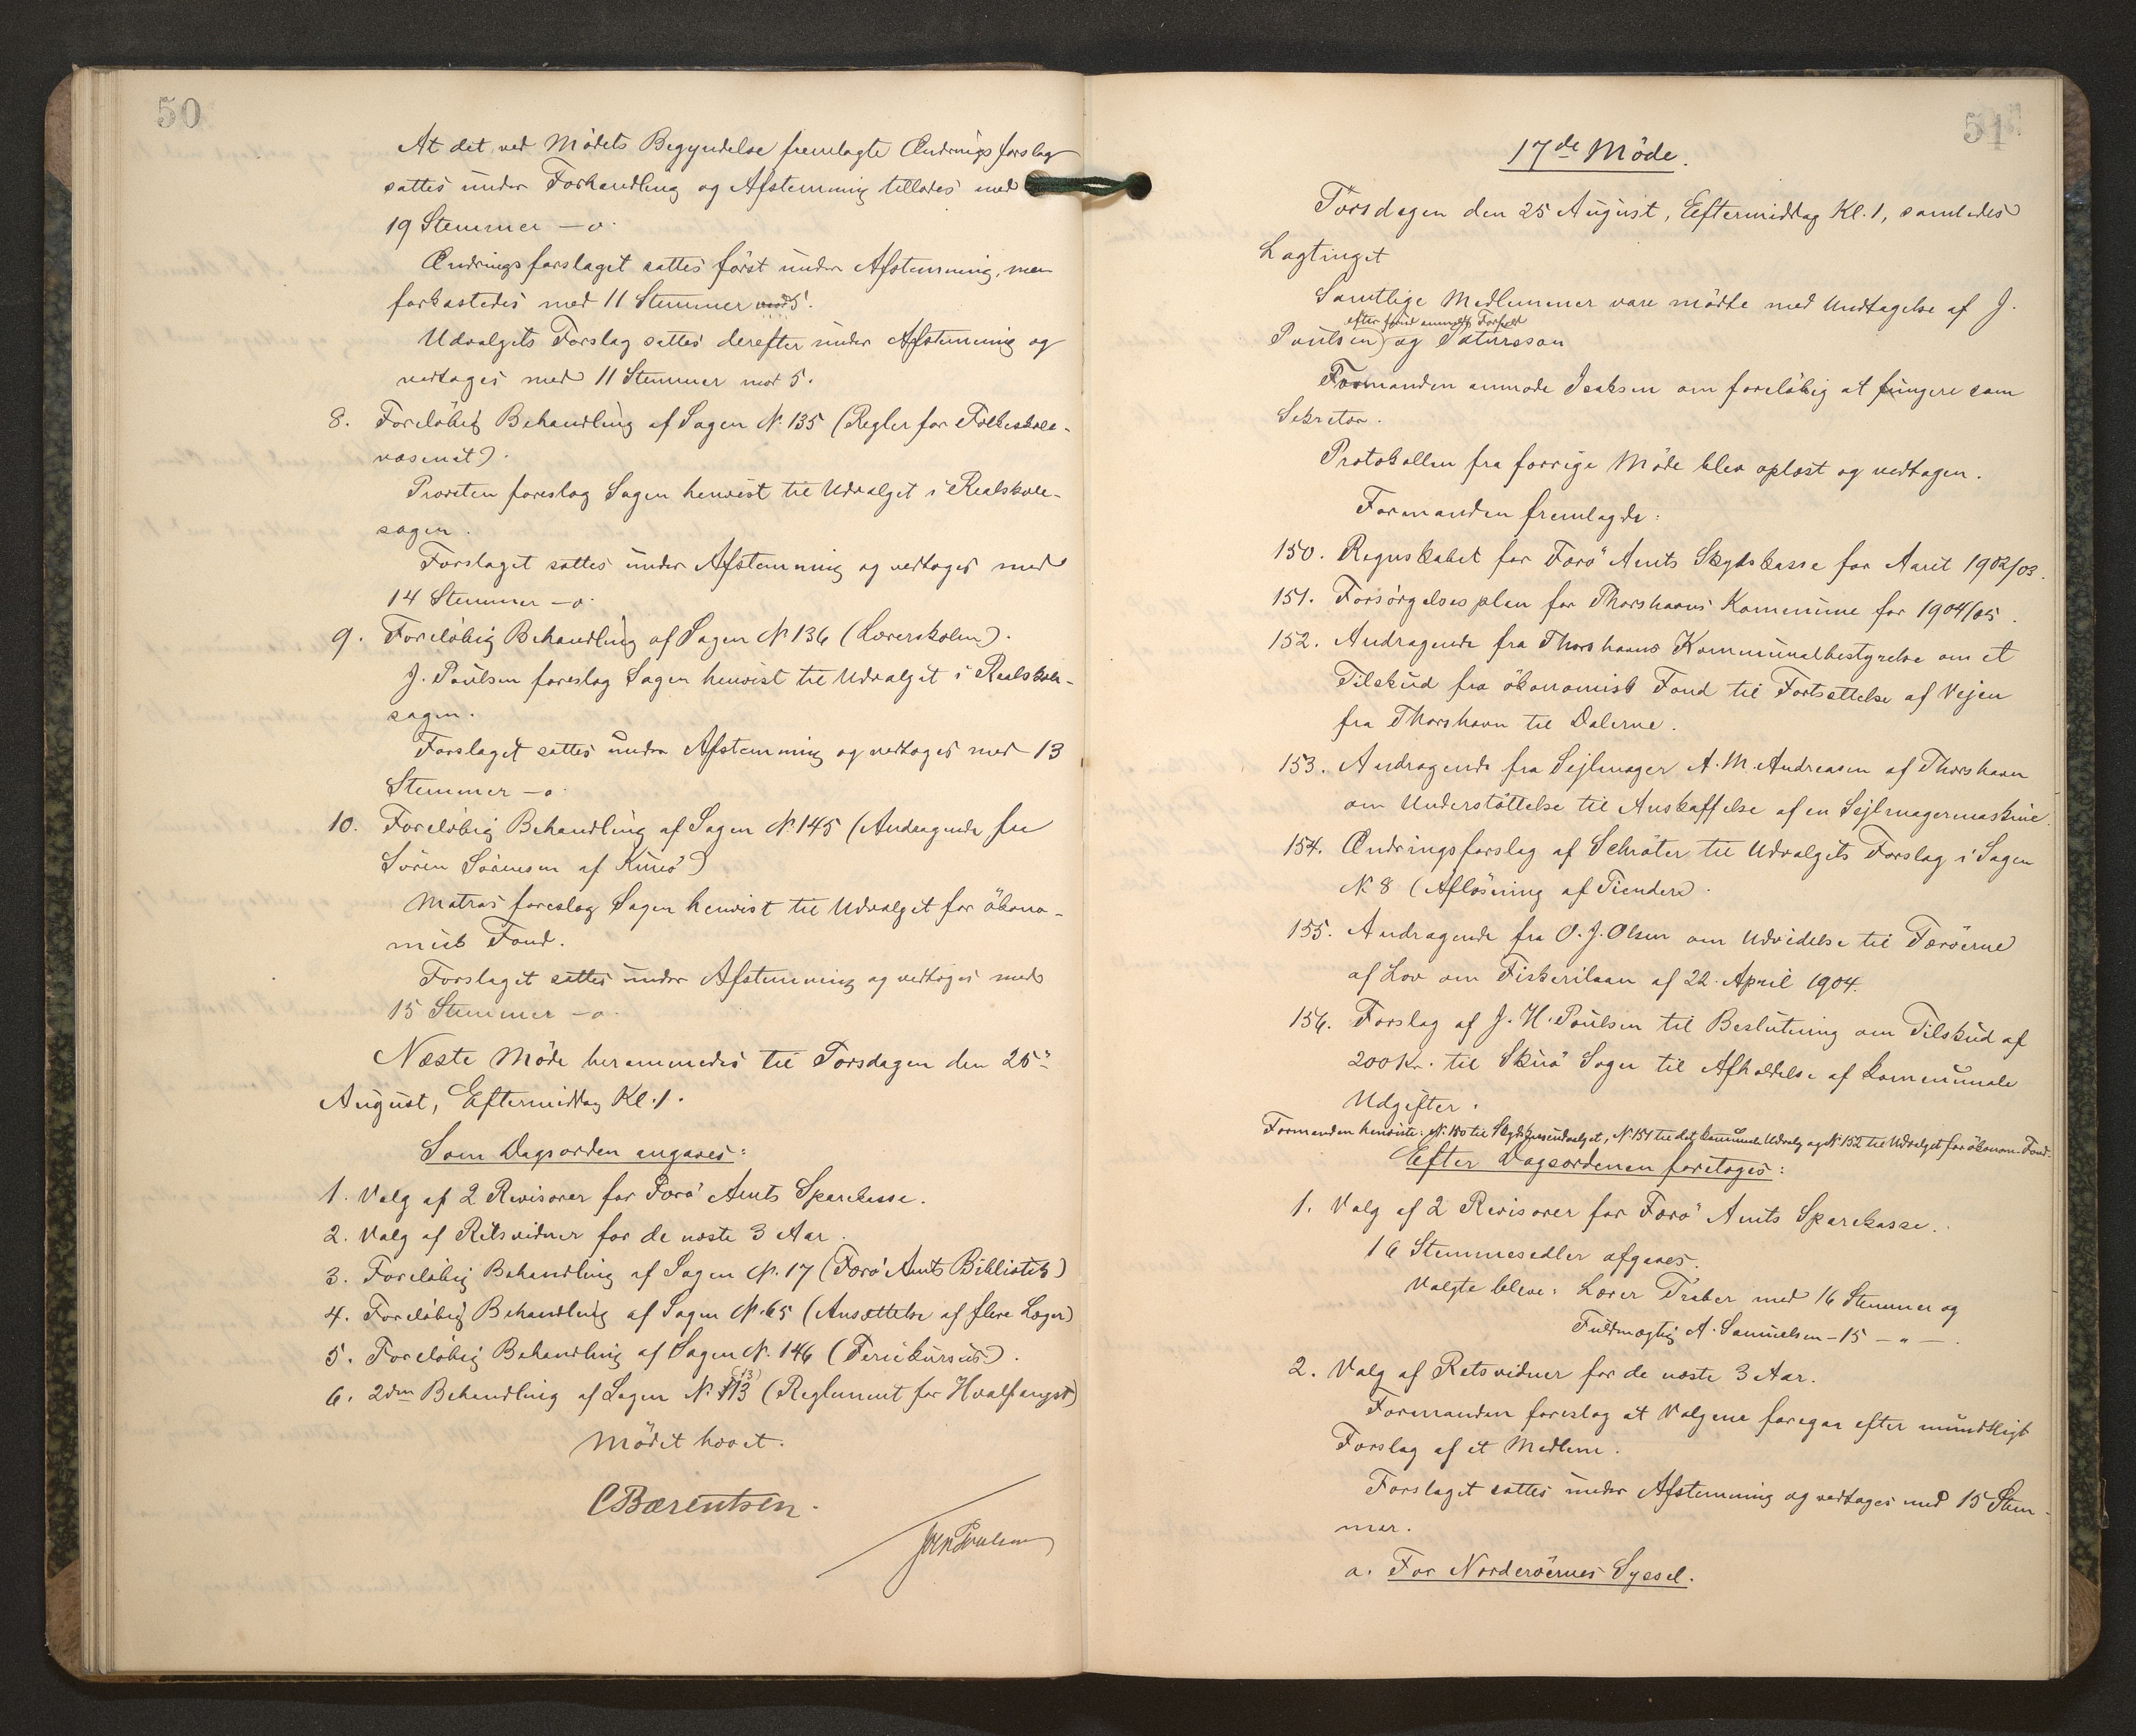 50
At det ved Mödets Begyndelse fremlagte Ændringsforslag
sattes under Forhandling og Afstemning tillodes med
19 Stemmer – o.
Ændringsforslaget sattes först under Afstemning, men
forkastedes med 11 Stemmer mod 5.
Udvalgets Forslag sattes derefter under Afstemning og
vedtoges med 11 Stemmer mod 5.
8. Foreløbig Behandling af Sagen N. 135 (Regler for Folkeskole-
væsenet).
Provsten foreslog Sagen henvist til Udvalget i Realskole-
sagen.
Forslaget sattes under Afstemning og vedtoges med
14 Stemmer – o.
9. Foreløbig Behandling af Sagen N. 136 (Lærerskolen).
J. Poulsen foreslog Sagen henvist til Udvalget i Realskole-
sagen.
Forslaget sattes under Afstemning og vedtoges med 13
Stemmer – o.
10. Foreløbig Behandling af Sagen N. 145 (Andragende fra
Sören Sörensen af Kunö)
Matras foreslog Sagen henvist til Udvalget for ökono-
misk Fond.
Forslaget sattes under Afstemning og vedtoges med
15 Stemmer – o.
Næste Möde berammedes til Torsdagen den 25
August, Eftermiddag Kl. 1.
Som Dagsorden angaves:
1. Valg af 2 Revisorer for Færö Amts Sparekasse.
2. Valg af Retsvidner for de næste 3 Aar.
3. Foreløbig Behandling af Sagen N. 17 (Færö Amts Bibliotek)
4. Foreløbig Behandling af Sagen N. 65 (Ansættelse af flere Læger)
5. Foreløbig Behandling af Sagen N. 146 (Feriekursus).
(13)
6. 2den Behandling af Sagen N. 113 (Reglement for Hvalfangst)
Mödet hævet.
CBærentsen.
JHPoulsen
51
17de Möde.
Torsdagen den 25 August, Eftermiddag Kl. 1, samledes
Lagtinget
Samtlige Medlemmer vare mödte med Undtagelse af J.
efter anmeldt Forfald
Poulsen) og Patursson
Formanden anmode Isaksen om foreløbig at fungere som
Sekretær.
Protokollen fra forrige Möde blev oplæst og vedtagen.
Formanden fremlagde:
150. Regnskabet for Færö Amts Skydskasse for Aaret 1902/03.
151. Forsörgelsesplan for Thorshavns Kommune for 1904/05.
152. Andragende fra Thorshavns Kommunalbestyrelse om et
Tilskud fra ökonomisk Fond til Fortsættelse af Vejen
fra Thorshavn til Dalerne.
153. Andragende fra Sejlmager A. M. Andreasen af Thorshavn
om Understöttelse til Anskaffelse af en Sejlmagermaskine.
154. Ændringsforslag af Schröter til Udvalgets Forslag i Sagen
N 8 (Aflösning af Tienden).
155. Andragende fra O. J. Olsen om Udvidelse til Færöerne
af Lov om Fiskerilaan af 22. April 1904.
156. Forslag af J. H. Poulsen til Beslutning om Tilskud af
200 Kr. til Skuö Sogn til Afholdelse af kommunale
Udgifter.
Formanden henviste: N. 150 til Skydsudvalget, N. 151 til det kommunale Udvalg og N. 152 til Udvalget for ökonom. Fond.
Efter Dagsordenen foretoges:
1. Valg af 2 Revisorer for Færö Amts Sparekasse.
16 Stemmesedler afgaves.
Valgte bleve: Lærer Træber med 16 Stemmer og
Fuldmægtig A. Samuelsen – 15 – " –.
2. Valg af Retsvidner for de næste 3 Aar.
Formanden foreslog at Valgene foregaar efter mundtligt
Forslag af et Medlem.
Forslaget sattes under Afstemning og vedtoges med 15 Stem-
mer.
a. For Norderöernes Syssel.